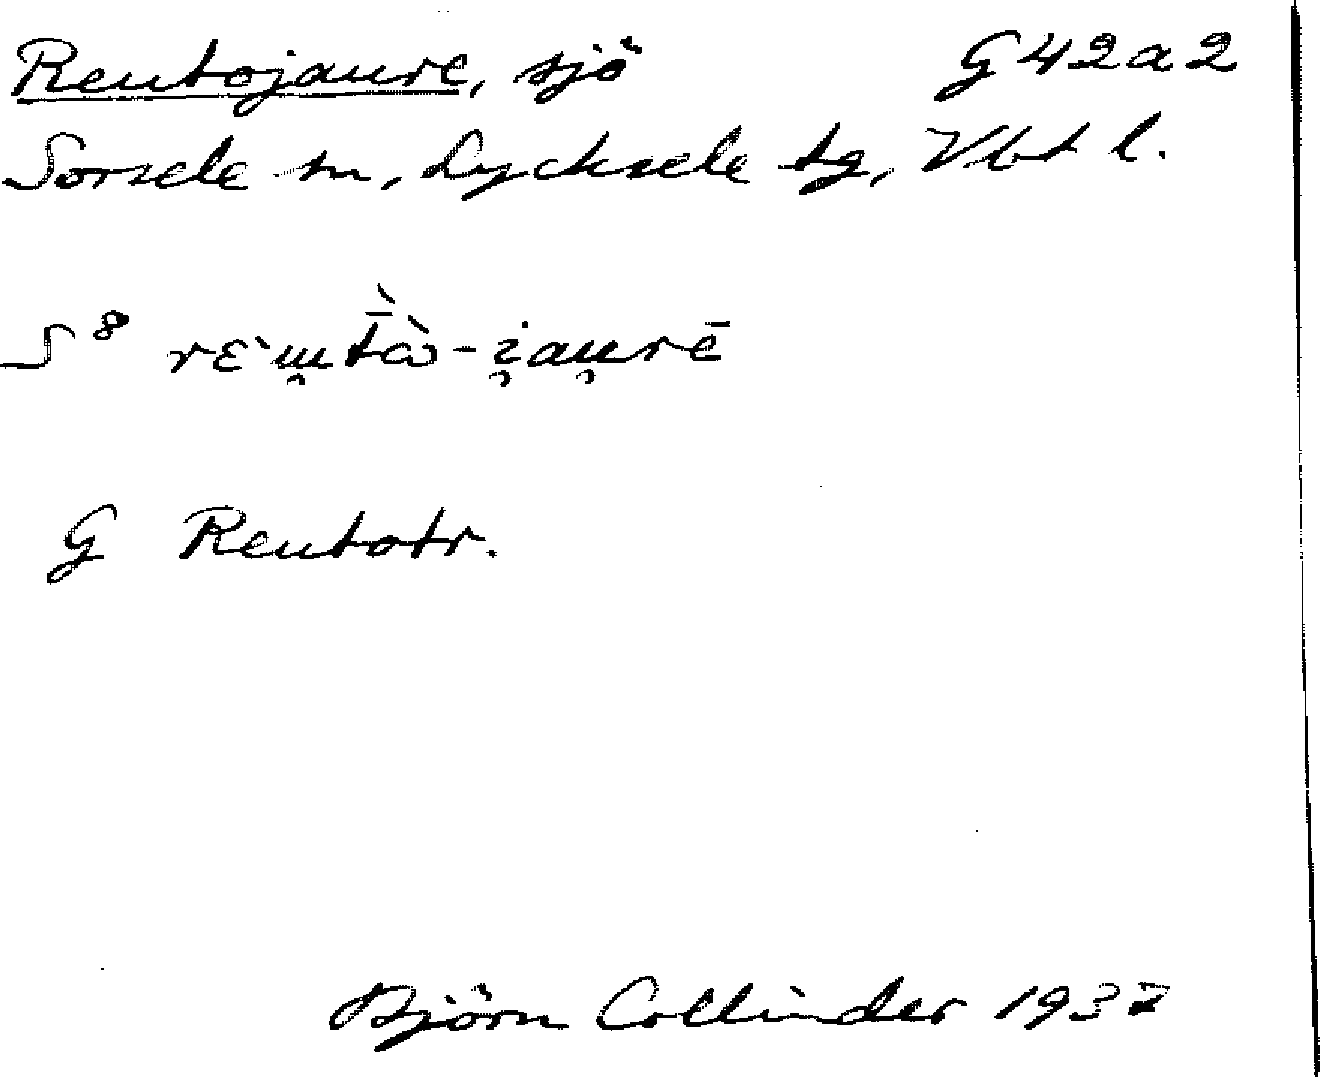 Reutojaure, sjö G42a2
Sorsele sn, Lycksele tg, Vbt l.
S⁸ rεˋɯ̯t̄̀ὼ-i̯au̯rē
G Reutotr.
Björn Collinder 1937